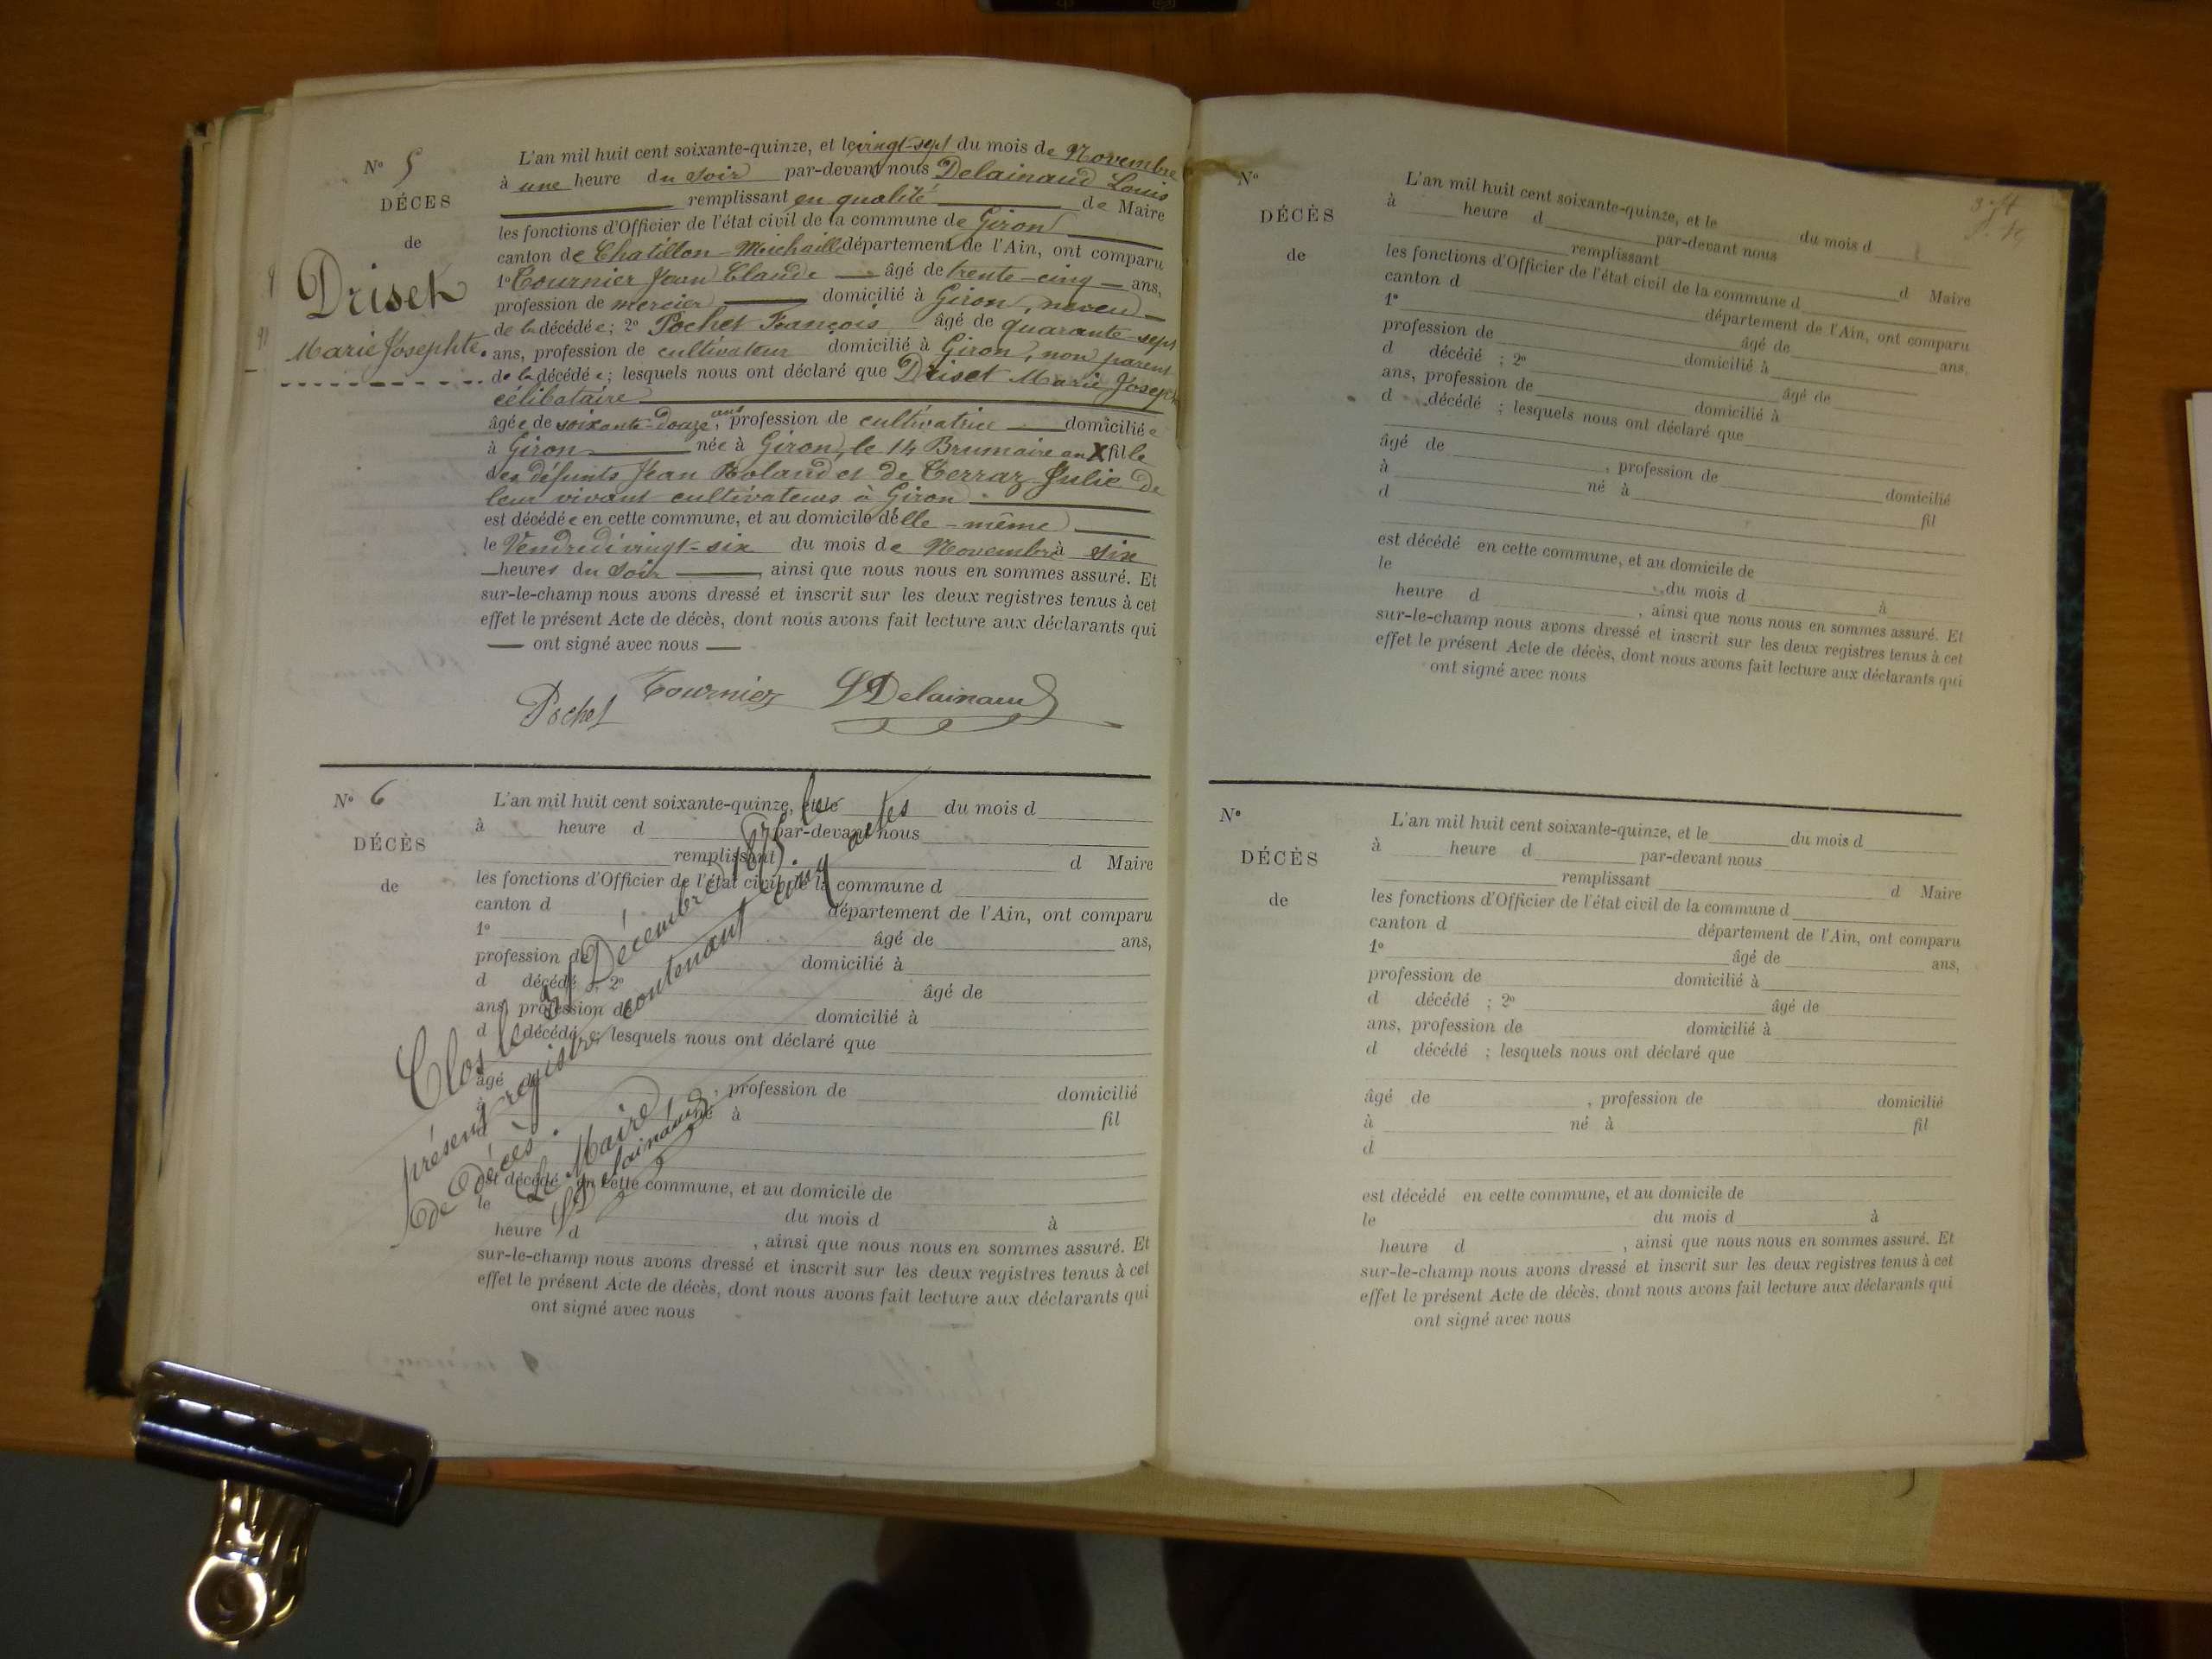 N° 5
DÉCES
de
Driset
Marie Josephte.
L'an mil huit cent soixante-quinze, et le vingt-sept du mois de Novembre
à une heure du soir par-devant nous Delainaud Louis
remplissant en qualité de Maire
les fonctions d'Officier de l'état civil de la commune de Giron
canton de Chatillon-Michaille département de l'Ain, ont comparu
1° Tournier Jean Claude âgé de trente-cinq ans,
profession de mercier domicilié à Giron, neveu
de la décédée; 2° Pochet François âgé de quarante-sept
ans, profession de cultivateur domicilié à Giron, non parent
de la décédée; lesquels nous ont déclaré que Driset Marie Joseph
célibataire
âgée de soixante-douze ans, profession de cultivatrice domiciliée
à Giron née à Giron, le 14 Brumaire an X fille
des défunts Jean Roland et de Terraz Julie de
leur vivant cultivateurs à Giron
est décédée en cette commune, et au domicile d'elle-même
le Vendredi vingt-six du mois de Novembre à six
heures du soir, ainsi que nous nous en sommes assuré. Et
sur-le-champ nous avons dressé et inscrit sur les deux registres tenus à cet
effet le présent Acte de décès, dont nous avons fait lecture aux déclarants qui
ont signé avec nous
Pochet Tournier LDelainaud
N° 6
DÉCÈS
de
L'an mil huit cent soixante-quinze, et le du mois d
à heure d par-devant nous
remplissant d Maire
les fonctions d'Officier de l'état civil de la commune d
canton d département de l'Ain, ont comparu
1° âgé de ans,
profession de domicilié à
d décédé ; 2° âgé de
ans, profession de domicilié à
d décédé ; lesquels nous ont déclaré que
âgé de , profession de domicilié
à né à fil
d
est décédé en cette commune, et au domicile de
le du mois d à
heure d , ainsi que nous nous en sommes assuré. Et
sur-le-champ nous avons dressé et inscrit sur les deux registres tenus à cet
effet le présent Acte de décès, dont nous avons fait lecture aux déclarants qui
ont signé avec nous
Clos le 31 Décembre 1875. le
présent registre contenant cinq actes
de Décès.
Le Maire
LDelainaud
N°
DÉCÈS
de
L'an mil huit cent soixante-quinze, et le du mois d
à heure d par-devant nous
remplissant d Maire
les fonctions d'Officier de l'état civil de la commune d
canton d département de l'Ain, ont comparu
1° âgé de ans,
profession de domicilié à
d décédé ; 2° âgé de
ans, profession de domicilié à
d décédé ; lesquels nous ont déclaré que
âgé de , profession de domicilié
à né à fil
d
est décédé en cette commune, et au domicile de
le du mois d à
heure d , ainsi que nous nous en sommes assuré. Et
sur-le-champ nous avons dressé et inscrit sur les deux registres tenus à cet
effet le présent Acte de décès, dont nous avons fait lecture aux déclarants qui
ont signé avec nous
N°
DÉCÈS
de
L'an mil huit cent soixante-quinze, et le du mois d
à heure d par-devant nous
remplissant d Maire
les fonctions d'Officier de l'état civil de la commune d
canton d département de l'Ain, ont comparu
1° âgé de ans,
profession de domicilié à
d décédé ; 2° âgé de
ans, profession de domicilié à
d décédé ; lesquels nous ont déclaré que
âgé de , profession de domicilié
à né à fil
d
est décédé en cette commune, et au domicile de
le du mois d à
heure d , ainsi que nous nous en sommes assuré. Et
sur-le-champ nous avons dressé et inscrit sur les deux registres tenus à cet
effet le présent Acte de décès, dont nous avons fait lecture aux déclarants qui
ont signé avec nous